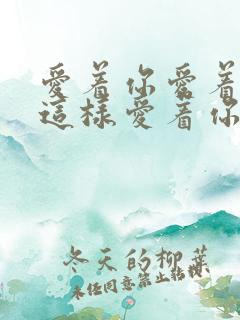 愛着你愛着
這樣愛着你
冬天的柳葉
未经同意禁止转载